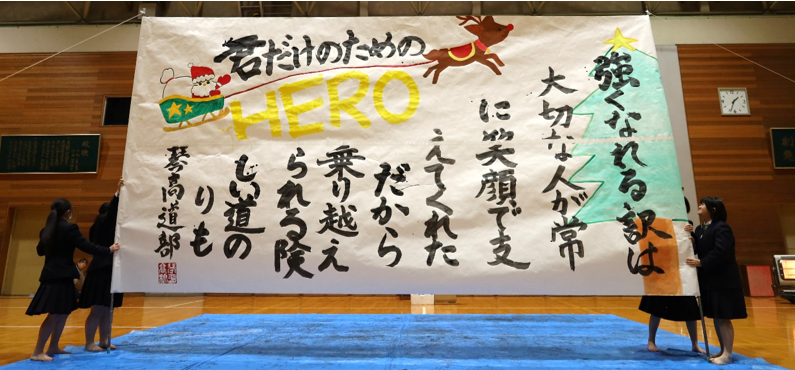 君だけのための
HERO
強くなれる訳は
大切な人が常
に笑顔で支
えてくれた
だから
乗り越え
られる険
しい道の
りも
琴高書道部